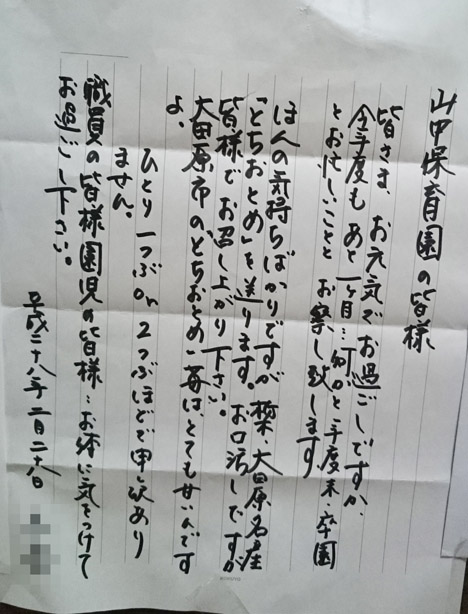 山甲保育園の皆様
皆さま、お元気でお過ごしですか、
今年度もあと一ヶ月…何かと年度末・卒園
とお忙しいことと お察し致します
ほんの気持ちばかりですが 栃木・大田原名産
「とちおとめ」を送ります。お口汚しですが
皆様でお召し上がり下さい。
大田原市の「とちおとめ」苺は、とても甘いんです
よ。
ひとり一つぶor2つぶほどで申し訳あり
ません。
職員の皆様園児の皆様…お体に気をつけて
お過ごし下さい。
平成二十八年二月二十八日